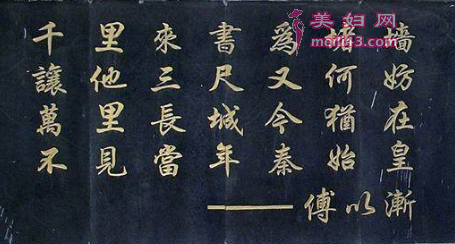 美妇网
千里來書爲堵墻
讓他三尺又何妨
萬里長城今猶在
不見當年秦始皇
——傅以漸